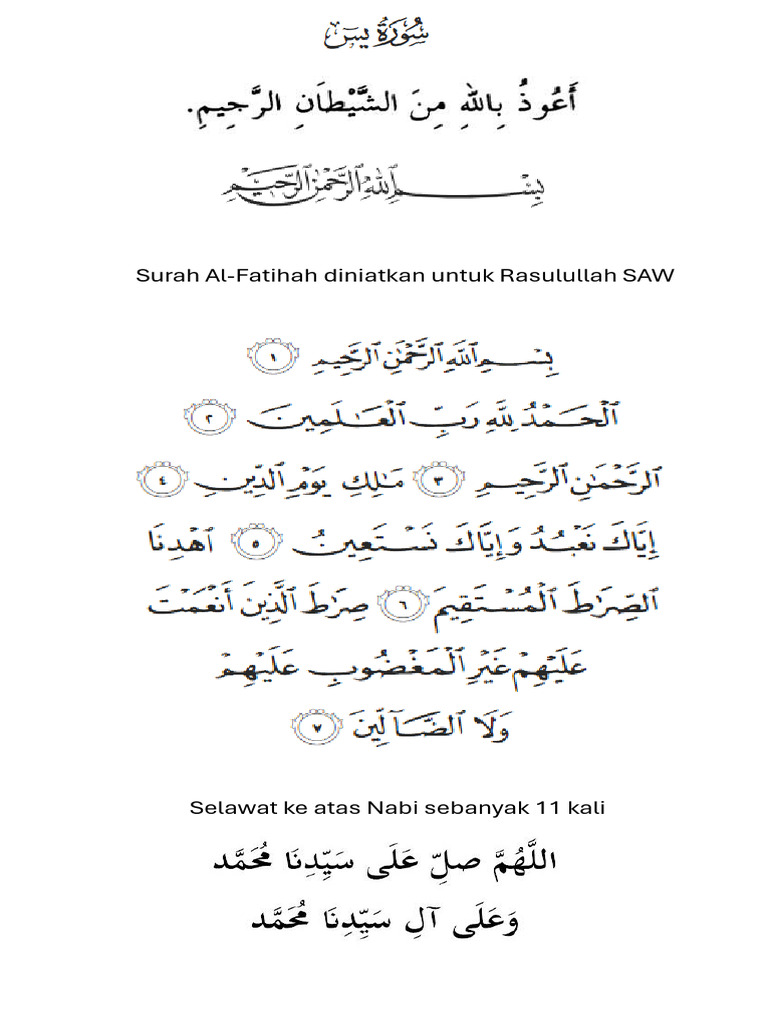 سُورَةُ يسٓ
أَعُوذُ بِاللهِ مِنَ الشَّيْطَانِ الرَّجِيمِ.
بِسْمِ ٱللَّهِ ٱلرَّحْمَٰنِ ٱلرَّحِيمِ
Surah Al-Fatihah diniatkan untuk Rasulullah SAW
بِسْمِ ٱللَّهِ ٱلرَّحْمَٰنِ ٱلرَّحِيمِ ١
ٱلْحَمْدُ لِلَّهِ رَبِّ ٱلْعَٰلَمِينَ ٢
ٱلرَّحْمَٰنِ ٱلرَّحِيمِ ٣ مَٰلِكِ يَوْمِ ٱلدِّينِ ٤
إِيَّاكَ نَعْبُدُ وَإِيَّاكَ نَسْتَعِينُ ٥ ٱهْدِنَا
ٱلصِّرَٰطَ ٱلْمُسْتَقِيمَ ٦ صِرَٰطَ ٱلَّذِينَ أَنْعَمْتَ
عَلَيْهِمْ غَيْرِ ٱلْمَغْضُوبِ عَلَيْهِمْ
وَلَا ٱلضَّآلِّينَ ٧
Selawat ke atas Nabi sebanyak 11 kali
اللَّهُمَّ صلِّ عَلَى سَيِّدِنَا مُحَمَّد
وَعَلَى آلِ سَيِّدِنَا مُحَمَّد